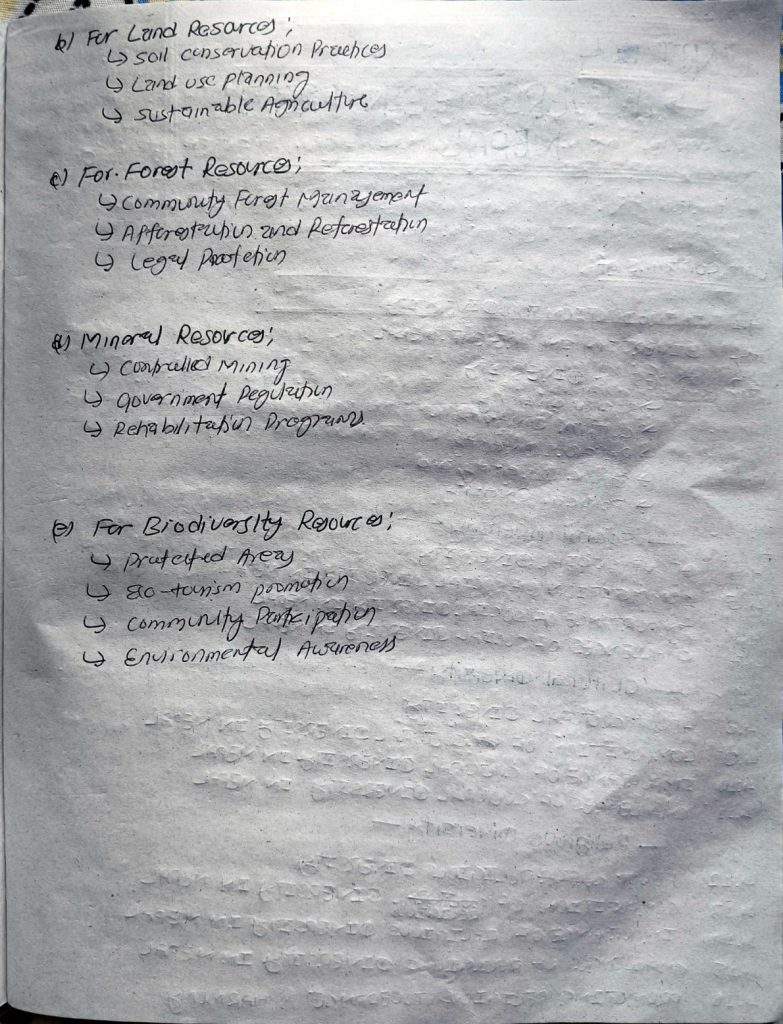 b) For Land Resources;
↳ Soil conservation Practices
↳ Land use planning
↳ Sustainable Agriculture
c) For Forest Resources;
↳ Community Forest Management
↳ Afforestation and Reforestation
↳ Legal Protetion
d) Mineral Resources;
↳ Controlled Mining
↳ Government Regulation
↳ Rehabilitation Programs.
e) For Biodiversity Resources;
↳ Protected Areas
↳ Eco-tourism promotion
↳ Community Participation
↳ Environmental Awareness